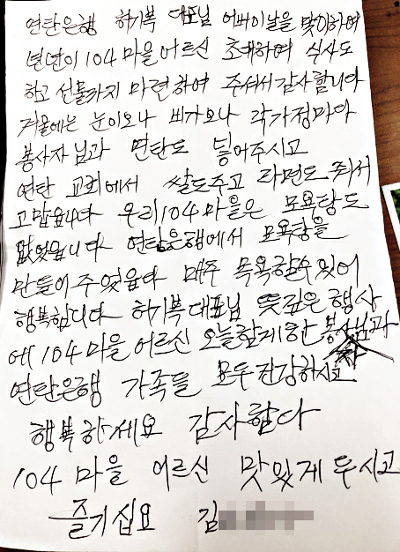 연탄은행 허기복 대표님 어버이날을 맞이하여
년년이 104마을 어르신 초대하여 식사도
하고 선물까지 마련하여 주셔서 감사합니다
겨울에는 눈이오나 비가오나 각가정마다
봉사자님과 연탄도 늫어주시고
연탄 교회에서 쌀도주고 라면도 줘서
고맙습니다 우리 104마을은 모욕탕도
없었읍니다 연탄은행에서 모욕탕을
만들어 주었읍다 매주 목욕할수있어
행복합니다 허기복대표님 뜻깊은 행사
에 104마을 어르신 오늘함게한 봉사님과
연탄은행 가족들 모두 건강하시고
행복하세요 감사합다
104 마을 어르신 맛있게 두시고
즐기십요 김